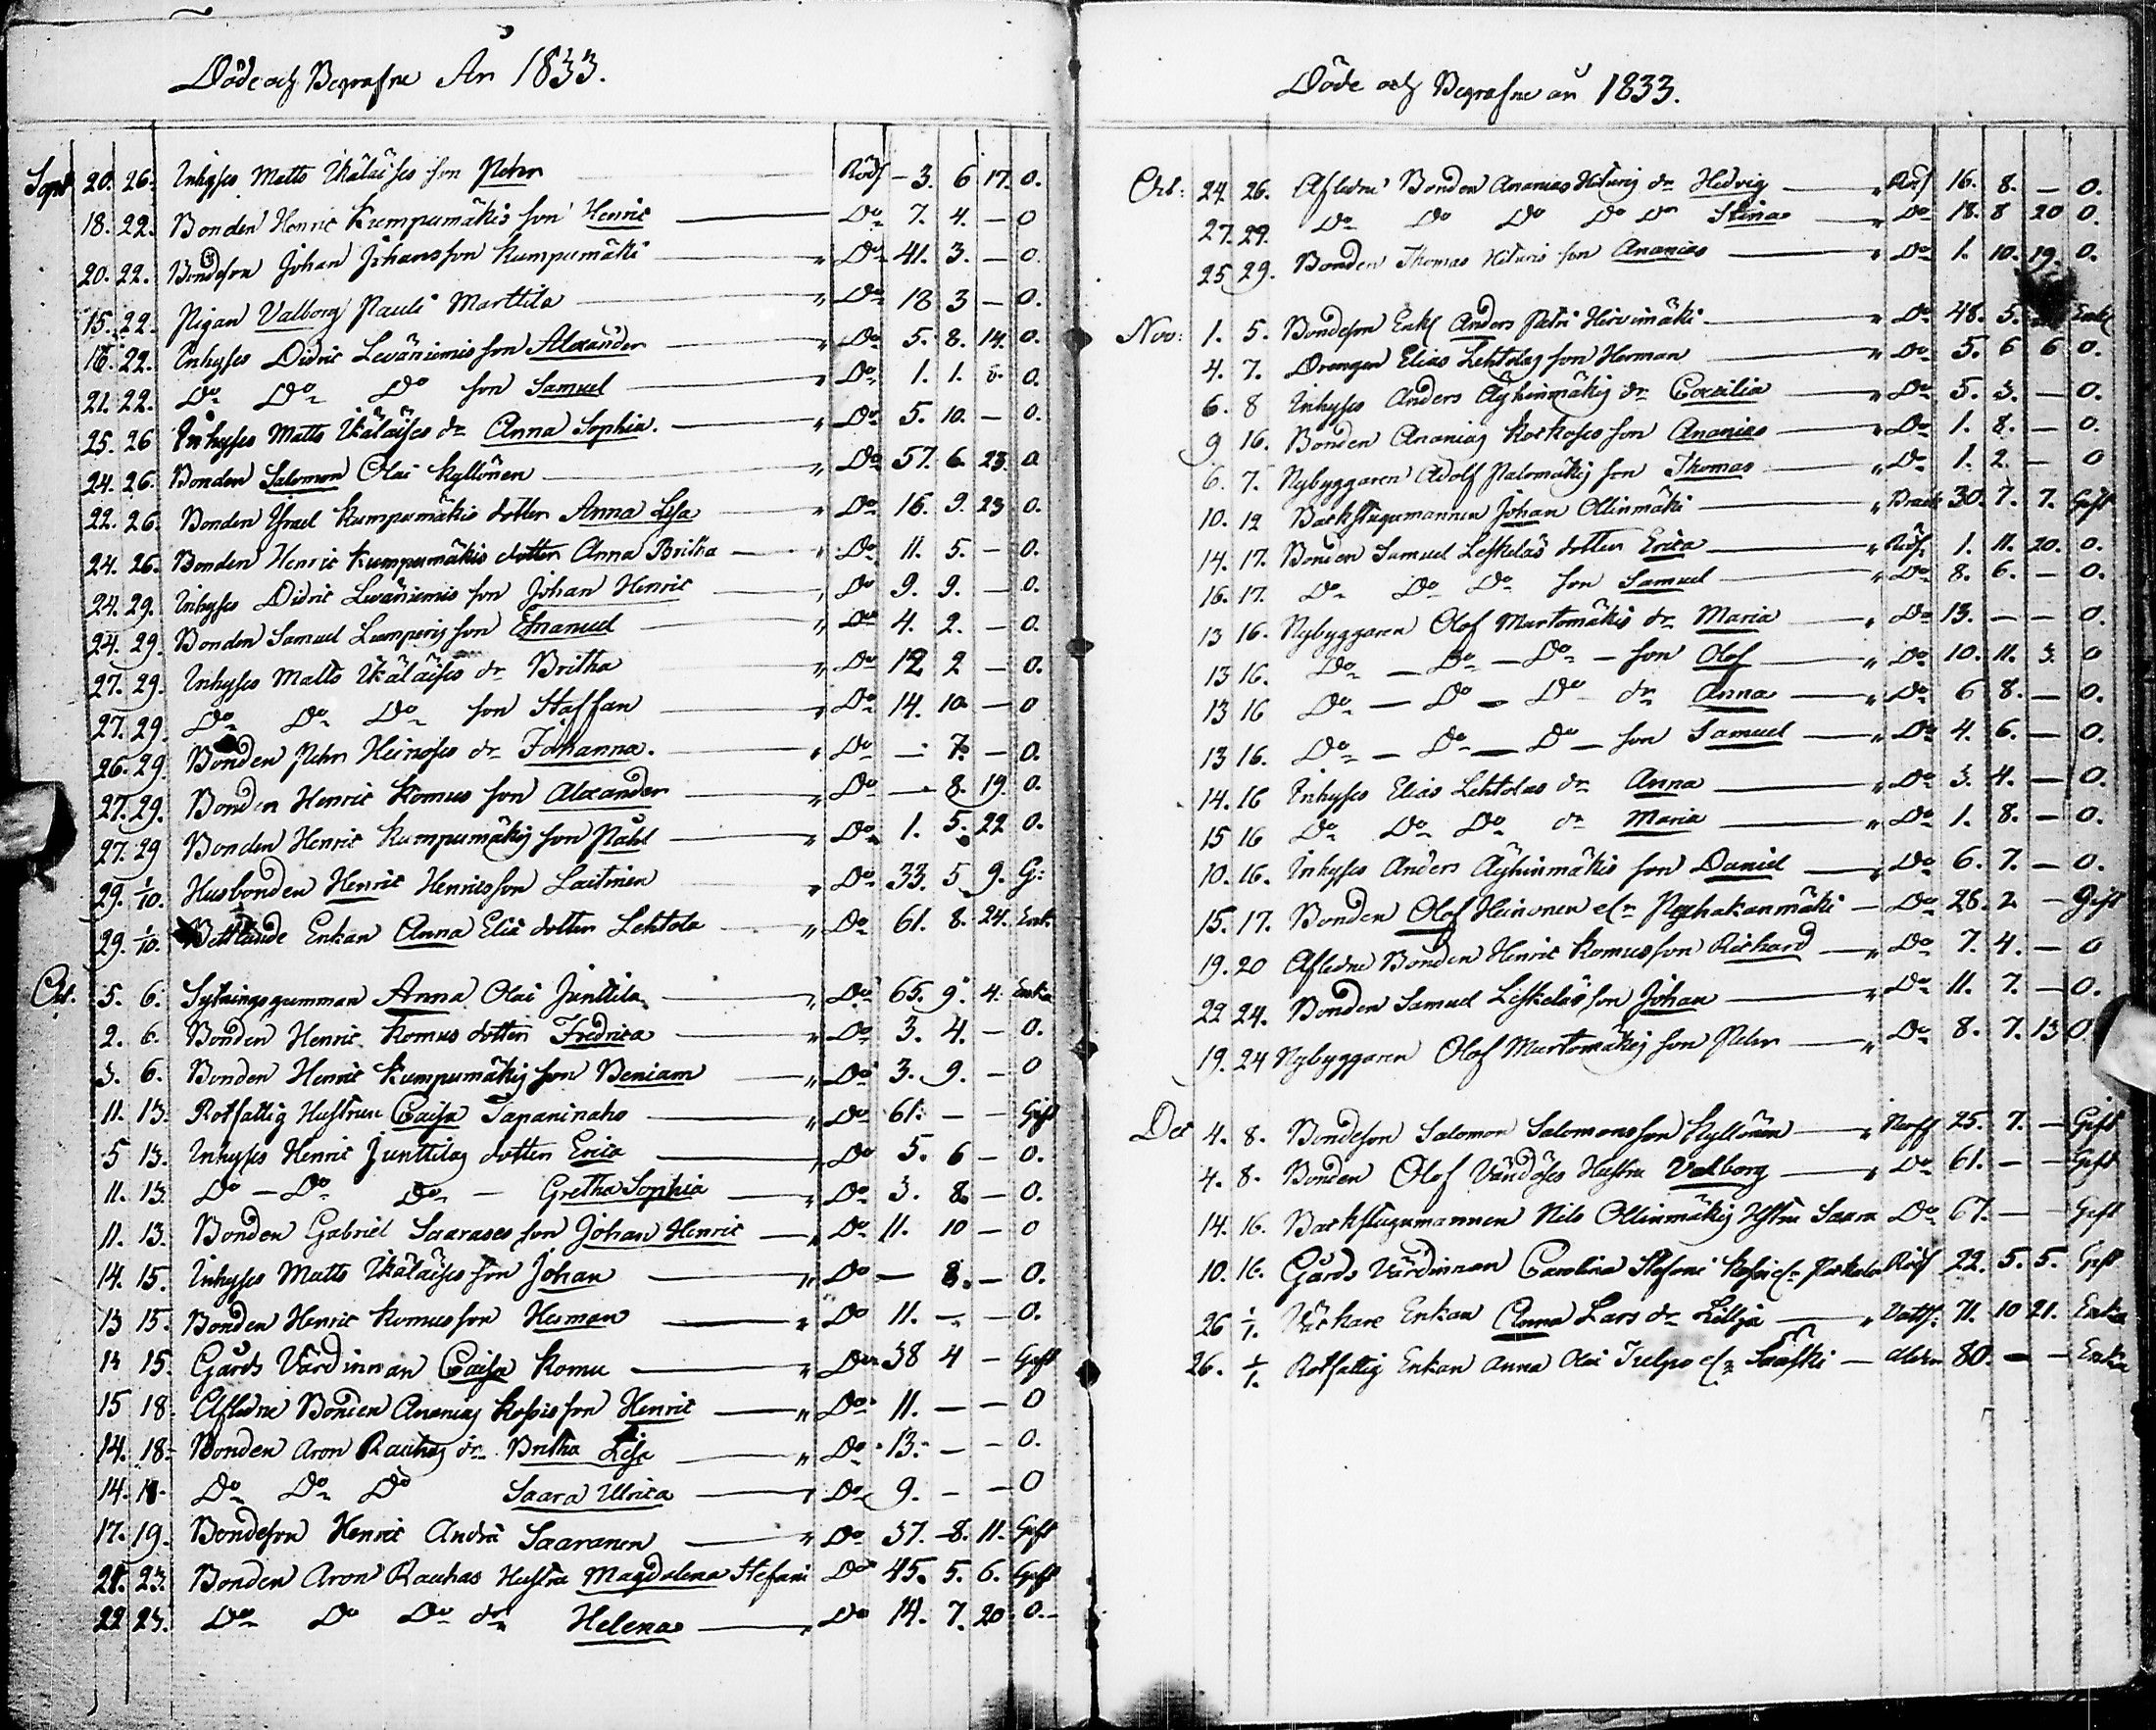 Döde och Begrafne År 1833.
Sept 20. 26. Inhyses Matts Ikäläises son Pehr Röds 3. 6 17. 0.
18. 22. Bonden Henric Kumpumäkis son Henric Do 7. 4. — 0
20. 22. Bondeson Johan Johansson Kumpumäki Do 41. 3. — 0.
15. 22. Pigan Valborg Pauli Marttila Do 18 3 — 0.
18. 22. Inhyses Didric Leväniemis son Alexander Do 5. 8. 14. 0.
21. 22. Do Do Do son Samuel Do 1. 1. 8. 0.
25. 26 Inhyses Matts Ikäläises dr Anna Sophia. Do 5. 10. — 0.
24. 26. Bonden Salomon Olai Kyllönen Do 57. 6. 23. 0
22. 26. Bonden Israel Kumpumäkis dotter Anna Lisa Do 16. 9. 23 0.
24. 26. Bonden Henric Kumpumäkis dotter Anna Britha Do 11. 5. — 0.
24. 29. Inhyses Didric Leväniemis son Johan Henric Do 9. 9. — 0.
24. 29. Bonden Samuel Lumperis son Emanuel Do 4. 2. — 0.
27. 29. Inhyses Matts Ikäläises dr Britha Do 12 2 — 0.
27. 29. Do Do Do son Staffan Do 14. 10 — 0
26. 29. Bonden Pehr Heinoses dr Johanna. Do — 7. — 0.
27. 29. Bonden Henric Komus son Alexander Do — 8. 19. 0.
27. 29 Bonden Henric Kumpumäkis son Påhl Do 1. 5. 22 0.
29. 1/10. Husbonden Henric Henricsson Laitinen Do 33. 5 9. G:
29. 1/10. Enkan Anna Elia dotter Lehtola Do 61. 8. 24. Enk.
Oct. 5. 6. Sytningsgumman Anna Olai Junttila Do 65. 9. 4. Enka
2. 6. Bonden Henric Komus dotter Fredrica Do 3. 4. — 0.
3. 6. Bonden Henric Kumpumäkis son Beniam Do 3. 9. — 0
11. 13. Rotfattig Hustrun Caisa Tapaninaho Do 61. — — Gift
5 13. Inhyses Henric Junttilas dotter Erica Do 5. 6 — 0.
11. 13. Do — Do Do — Gretha Sophia Do 3. 8. — 0.
11. 13. Bonden Gabriel Saarases son Johan Henric Do 11. 10 — 0
14. 15. Inhyses Matts Ikäläises son Johan Do — 8. — 0.
13 15. Bonden Henric Komus son Herman Do 11. — — 0.
14 15. Gårds Värdinnan Caisa Komu Do 38 4 — Gift
15 18. Aflidne Bonden Ananias son Henric Do 11. — — 0
14. 18. Bonden Aron Rauhas dr Britha Lisa Do 13. — — 0.
14. 18. Do Do Do Saara Ulrica Do 9. — — 0
17. 19. Bondeson Henric Andra Saaranen Do 37. 8. 11. Gift
21. 23. Bonden Aron Rauhas Hustru Magdalena Stefani Do 45. 5. 6. Gift
22 23. Do Do Do dr Helena Do 14. 7. 20. 0.
Döde och Begrafne år 1833.
Oct: 24. 26. Aflidne Bonden Ananias Hituris dr Hedvig Röds 16. 8. — 0.
27. 29. Do Do Do Do dr Stina Do 18. 8 20 0.
25 29. Bonden Thomas Hituris son Ananias Do 1. 10. 19. 0.
Nov: 1. 5. Bondeson Enkl Anders Petri Hirvimäki Do 48. 5. Enkl
4. 7. Drengen Elias Lehtolas son Herman Do 5. 6 6 0.
6. 8 Inhyses Anders Äyhinmäkis dr Cæcilia Do 5. 3. — 0.
9 16. Bonden Ananias Korkoses son Ananias Do 1. 8. — 0.
6. 7. Nybyggaren Adolf Palomäkis son Thomas Do 1. 2. — 0
10. 12 Backstugumannen Johan Ollinmäki 30. 7. 7. Gift
14. 17. Bonden Samuel Leskeläs dotter Erica Röds 1. 11. 20. 0.
16. 17. Do Do Do son Samuel Do 8. 6. — 0.
13 16. Nybyggaren Olof Murtomäkis dr Maria Do 13. — — 0.
13 16. Do — Do — Do — son Olof Do 10. 11. 3. 0
13 16 Do — Do — Do dr Anna Do 6 8. — 0.
13 16. Do — Do — Do — son Samuel Do 4. 6. — 0.
14. 16 Inhyses Elias Lehtolas dr Anna Do 3. 4. — 0.
15 16 Do Do Do dr Maria Do 1. 8. — 0.
10. 16. Inhyses Anders Äyhinmäkis son Daniel Do 6. 7. — 0.
15. 17. Bonden Olof Heinonen elr Pyhakanmäki Do 28. 2 — Gift
19. 20 Aflidne Bonden Henric Komus son Richard Do 7. 4. — 0
22 24. Bonden Samuel Leskeläs son Johan Do 11. 7. — 0.
19. 24 Nybyggaren Olof Murtomäkis son Pehr Do 8. 7. 13 0
Dec 4. 8. Bondeson Salomon Salomonsson Kyllönen 25. 7. — Gift
4. 8. Bonden Olof Väudöses Hustru Valborg Do 61. — — Gift
14. 16. Backstugumannen Nils Ollinmäkis Hstru Saara Do 67. — — Gift
10. 16. Gårds Värdinnan Carolina Stefani Röds 22. 5. 5. Gift
26 1/1. Enkan Anna Lars dr Lillja 71. 10 21. Enka
26. 1/1. Rotfattig Enkan Anna Olai Tulpo elr Sääski 80. — — Enka